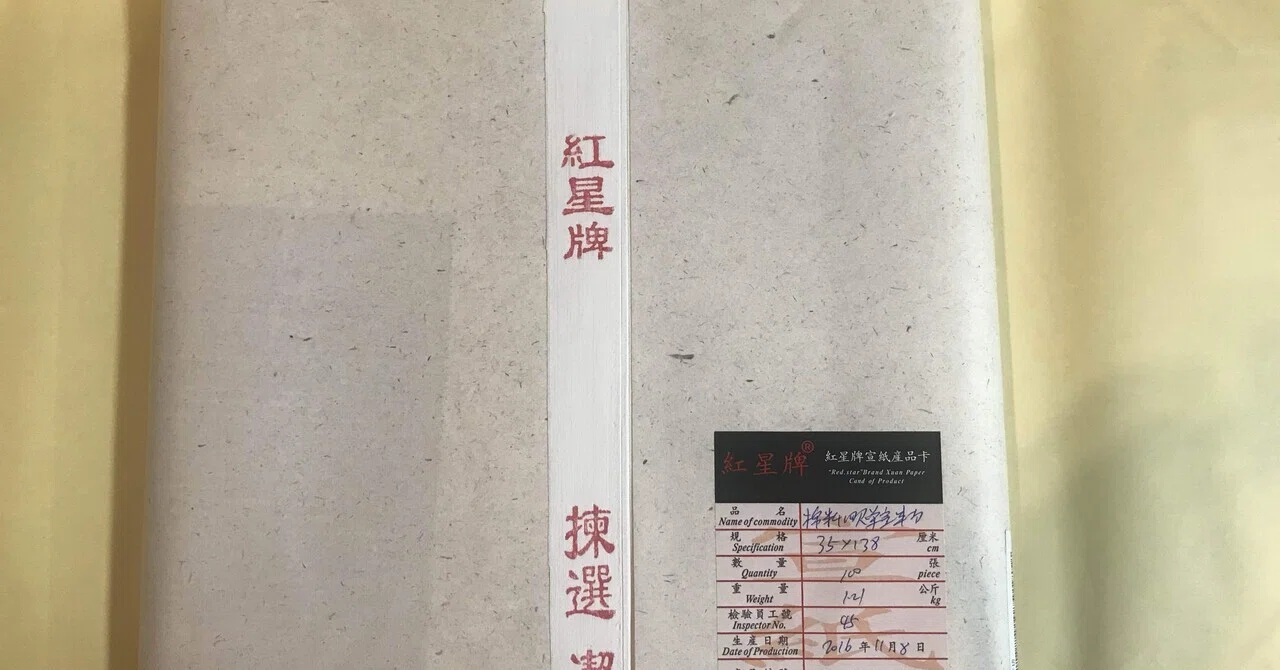 紅星牌
揀選 潔
紅星牌®
紅星牌宣紙産品卡
"Red.star"Brand Xuan Paper
Cand of Product
品名
Name of commodity
規格 35×138 厘米
Specification cm
數量 100 張
Quantity piece
重量 1.21 公斤
Weight kg
檢驗員工號 45
Inspector No.
生産日期 2016年11月8日
Date of Production